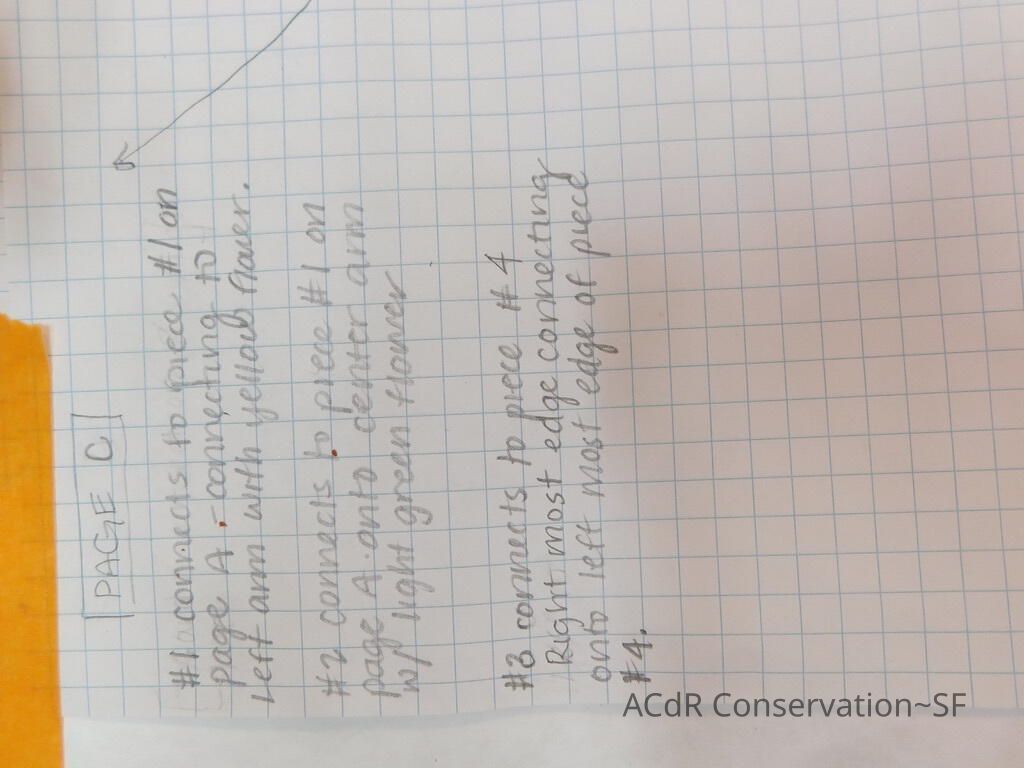 PAGE C
#1 connects to piece #1 on
page A - connecting to
left arm with yellow flower.
#2 connects to piece #1 on
page A onto center arm
w/ light green flower
#3 connects to piece #4
Right most edge connecting
onto left most edge of piece
#4.
ACdR Conservation~SF